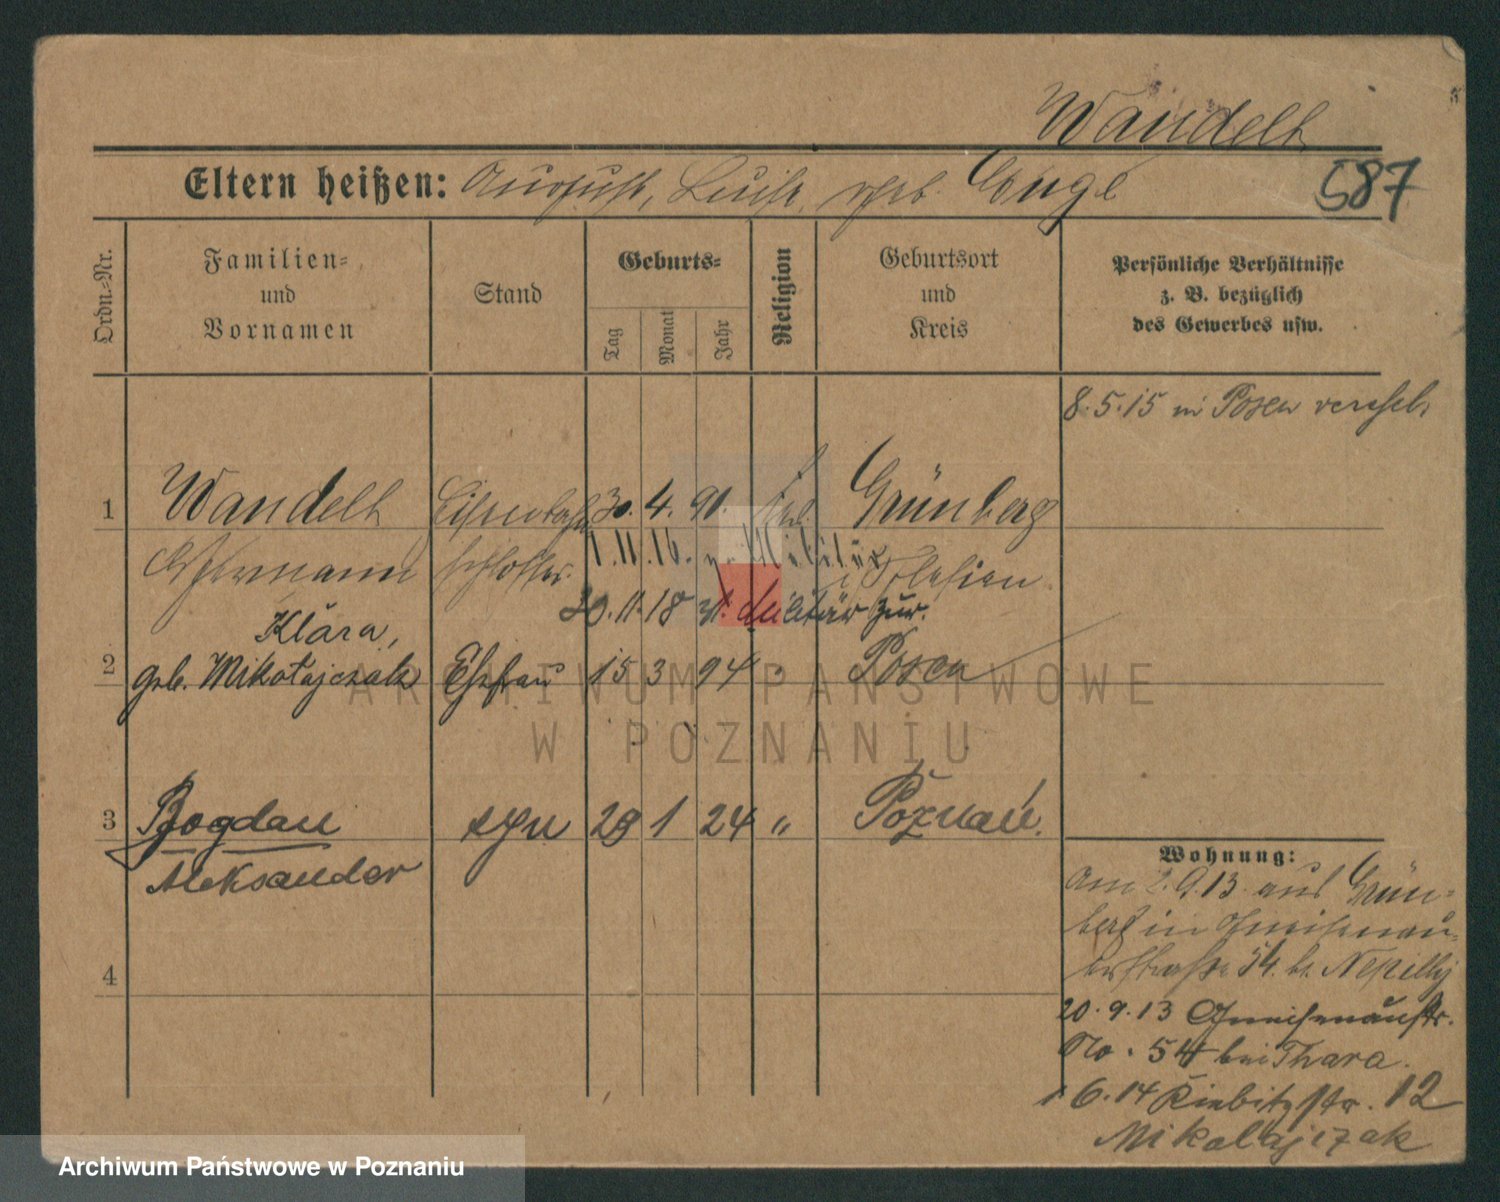 Wandelt
Eltern heißen: August, Luise geb. Lange
587
Ordn.-Nr.
Familien-
und
Vornamen
Stand
Geburts-
Tag
Monat
Jahr
Religion
Geburtsort
und
Kreis
Persönliche Verhältnisse
z. B. bezüglich
des Gewerbes usw.
8.5.15 in Posen verehel.
1 Wandelt Eisenbahn 30. 4. 91. Grünberg
Hermann schlosser. i Schlesien
1.11.16. z. Militär
30.11.18 v. Militär zur.
Klara,
2 geb. Mikołajczak Ehefrau 15 3 94 Posen
3 Bogdan syn 28 1 24 " Poznań.
Aleksander
4
Wohnung:
Am 2.9.13 aus Grün-
berg in Gneisenau-
straße 54. b.
20.9.13 Gneisenaustr.
No. 54 bei Thara.
1 6.14 Kiebitzstr. 12
Mikolajczak
ARCHIWUM PAŃSTWOWE
W POZNANIU
Archiwum Państwowe w Poznaniu